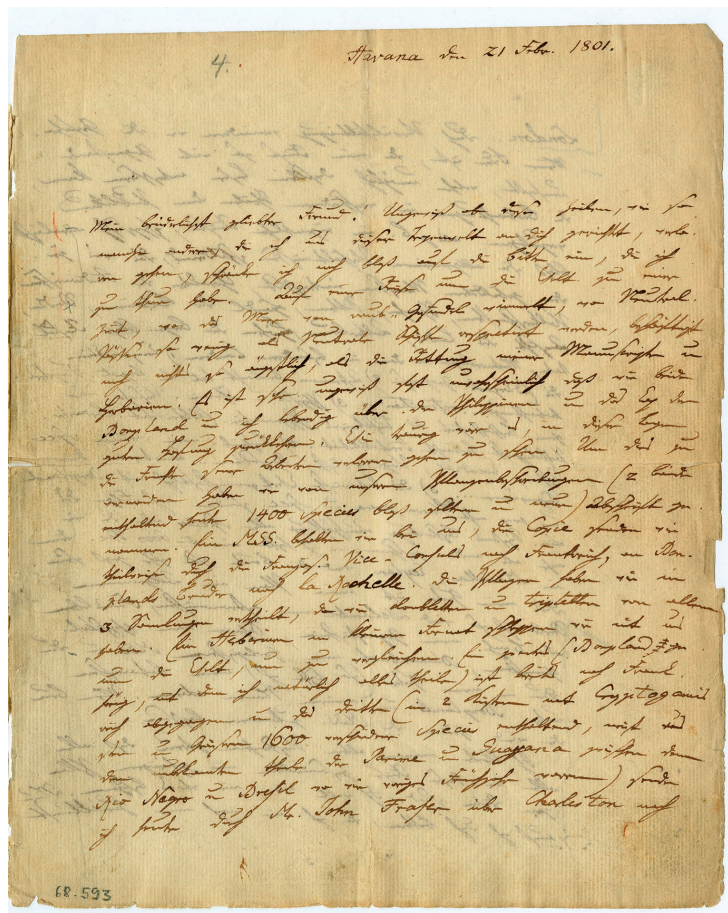 4.
Havana den 21 Febr. 1801.
Mein brüderlichst geliebter Freund! Ungewiß ob diese Zeilen, wie so
manche andere, die ich aus dieser Tropenwelt an Dich gerichtet, verlo-
ren gehen, schränke ich mich bloß auf die Bitte ein, die ich
zu thun habe. Auf einer Reise um die Welt zu einer
Zeit, wo das Meer von Raub-Gesindel wimmelt, wo Neutral-
Pässe so wenig als Neutrale Schiffe respectirt werden, beschäftigt
mich nichts so ängstlich, als die Rettung meiner Manuscripte u
Herbarien. Es ist sehr ungewiß fast unwahrscheinlich daß wir beide
Bonpland u ich lebendig über die Philippinen u das Cap der
guten Hofnung zurückkehren. Wie traurig wäre es, in dieser Lage
die Früchte seiner Arbeiten verloren gehen zu sehen. Um dies zu
vermeiden haben wir von unseren Pflanzenbeschreibungen (2 Bände
enthaltend heute 1400 species bloß seltene u neue) Abschrift ge-
nommen. Ein MSS. behalten wir bei uns, die Copie senden wir
theilweise durch die Französ. Vice-Consuls nach Frankreich, an Bon-
plands Bruder nach la Rochelle. Die Pflanzen haben wir in
3 Samlungen vertheilt, da wir doubletten u tripletten von allem
haben. Ein Herbarium in kleinem Format schleppen wir mit uns
um die Welt, um zu vergleichen. Ein zweites (Bonpland ge-
hörig, mit dem ich natürlich alles theile) ist bereits nach Frank-
reich abgegangen u das dritte (in 2 Kisten mit Cryptogamis
u Gräsern 1600 verschiedene Species enthaltend, meist aus
dem unbekannten Theile der Parime u Guayana zwischen dem
Rio Negro u Bresil wo wir voriges Frühjahr waren) sende
ich heute durch Mr. John Fraser über Charleston nach
68.593